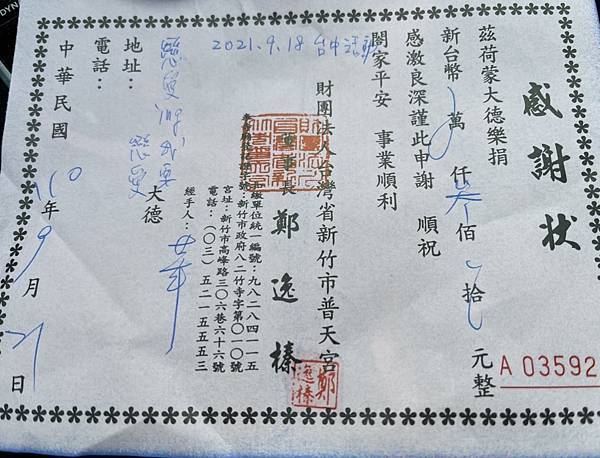 感謝狀
茲荷蒙大德樂捐
新台幣 萬 仟叁佰 拾 元整
感激良深謹此申謝 順祝
闔家平安 事業順利
A 03592
財團法人台灣省新竹市普天宮
董事長 鄭逸榛
鄭逸榛
扣繳單位統一編號:九八二八四一一五
號:新竹市政府八二竹寺字第〇一〇號
宮址:新竹市高峰路三〇六巷六十六號
電話:(〇三)五二一五五五三
經手人:
大德
地址:
電話:
中華民國 110 年 9 月 21 日
2021.9.18 台中